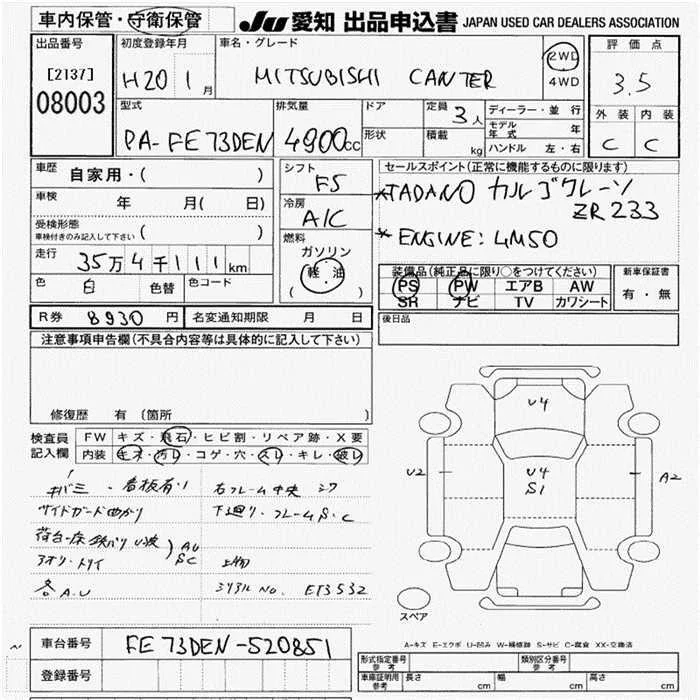 車内保管・守衛保管 JU 愛知 出品申込書 JAPAN USED CAR DEALERS ASSOCIATION
出品番号 初度登録年月 車名・グレード 評価点
[2137] H20 1月 MITSUBISHI CANTER 2WD 3.5
08003 4WD
外装 内装
C C
型式 排気量 ドア 定員 3人 ディーラー・並行
PA-FE73DEN 4900cc 形状 積載 kg モデル年式 年
ハンドル 左・右
車歴 自家用・( ) シフト F5 セールスポイント(正常に機能するものに限ります)
車検 年 月( 日) 冷房 A/C *TADANO カルゴクレーン
ZR233
受検形態 車検付きのみ記入して下さい ( ) 燃料 *ENGINE: 4M50
走行 35万4千111km ガソリン
軽・油
( )
色 白 色替 色コード
装備品(純正品に限り○をつけてください) 新車保証書
PS PW エアB AW 有・無
SR ナビ TV カワシート
R券 8930円 名変通知期限 月 日 後日品
注意事項申告欄(不具合内容等は具体的に記入して下さい)
修復歴 有 (箇所 )
検査員 FW キズ・飛石・ヒビ割・リペア跡・X要
記入欄 内装 キズ・汚レ・コゲ・穴・スレ・キレ・破レ
キバミ・看板有り 右フレーム中央
サイドガード曲がり 下廻り・フレームS・C
荷台-床 鉄バリ U波 AU
SC
アオリ・トリイ 上物
各A.U シリアルNo. ET3532
U4
U2 U4 A2
S1
スペア
A-キズ E-エクボ U-凹み W-補修跡 S-サビ C-腐食 XX-交換済
車台番号 FE73DEN-520851
登録番号
形式指定番号 参考 類別区分番号 参考
車庫証明用 参考 長さ cm 幅 cm 高さ cm